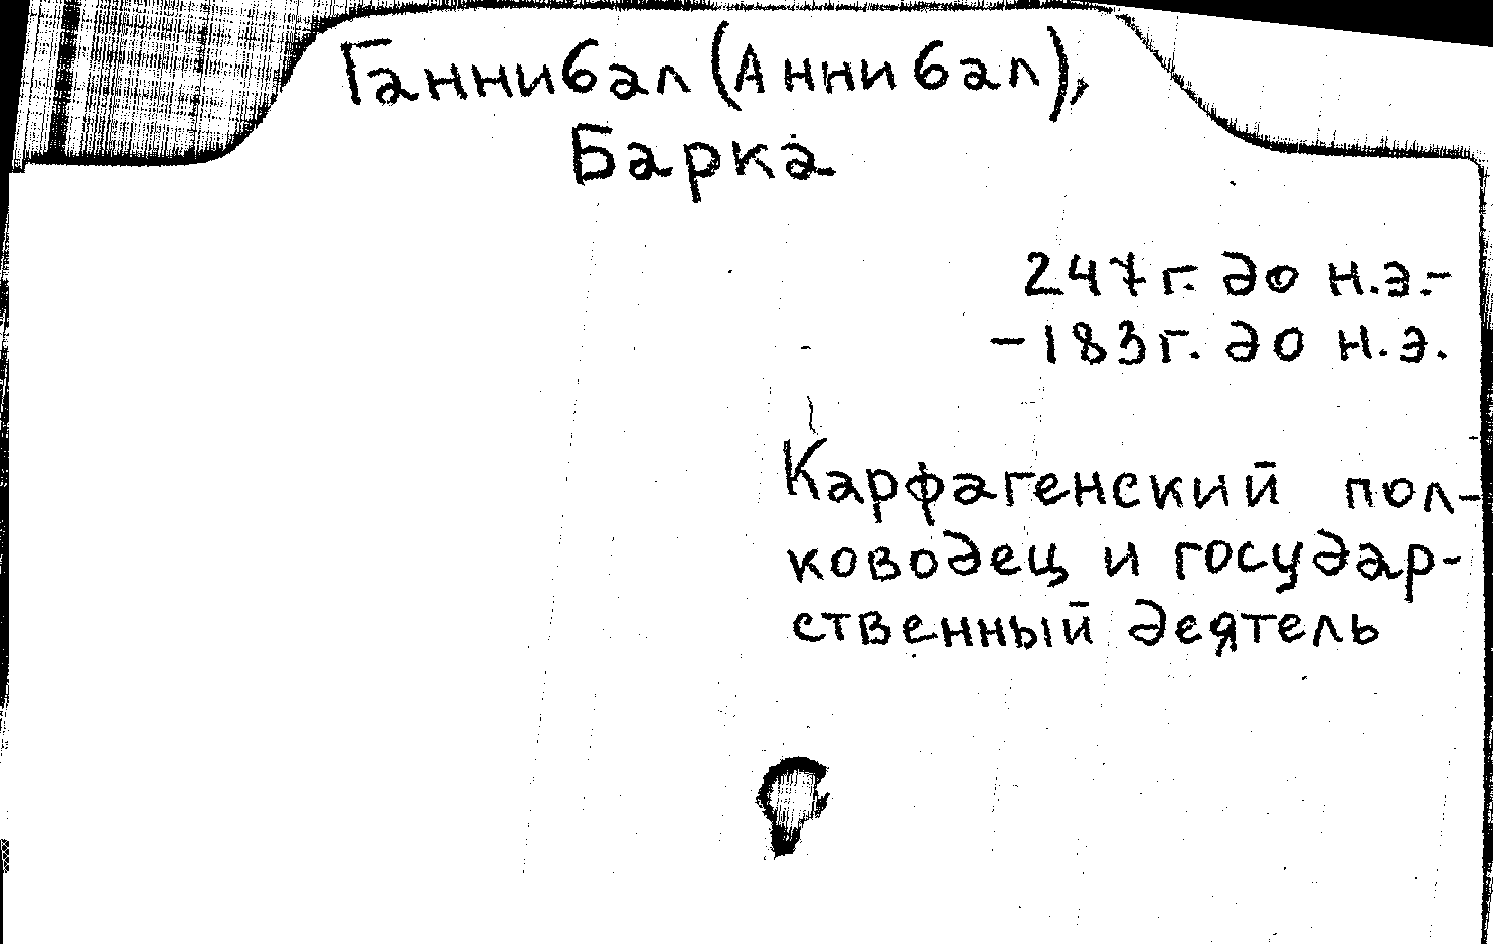 Ганнибал (Аннибал),
Барка
247г. до н.э.-
-183г. до н.э.
Карфагенский пол-
ководец и государ-
ственный деятель